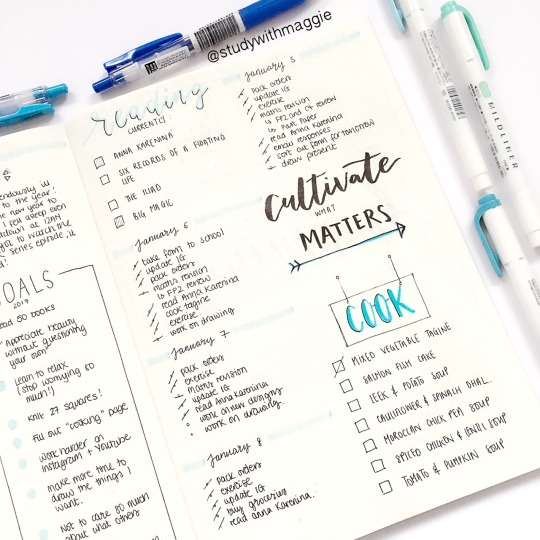 @studywithmaggie
MILDLINER
endously in
to the year!
he new year to
I fell asleep even
untdown at 12AM
got to watch the
series episode.
GOALS
2017
read 50 books
"Appreciate beauty
without questioning
your own"
Learn to relax
(stop worrying so
much!)
Knit 27 squares!
Fill out "cooking" page
work harder on
Instagram + Youtube
make more time to
draw the things I
want.
Not to care so much
about what others
reading
CURRENTLY:
ANNA KARENINA
SIX RECORDS OF A FLOATING
LIFE
THE ILIAD
BIG MAGIC
January 6
take form to school
update IG
pack orders
maths revision
FP2 review
read Anna Karenina
cook tagine
exercise
work on drawing
January 7
pack orders
exercise
maths revision
update IG
read Anna Karenina
work on new designs
work on drawing.
January 8
pack orders
exercise
update IG
buy groceries
read Anna Karenina.
January 5
pack orders
update IG
exercise
maths revision
FP2 and C4 review
Past Paper
read Anna Karenina
email responses
sort out form for tomorrow
draw present
Cultivate
WHAT
MATTERS
COOK
MIXED VEGETABLE TAGINE
SALMON FISH CAKE
LEEK & POTATO SOUP
CAULIFLOWER & SPINACH DHAL.
MOROCCAN CHICK PEA SOUP
SPICED CHICKEN & LENTIL SOUP
TOMATO & PUMPKIN SOUP